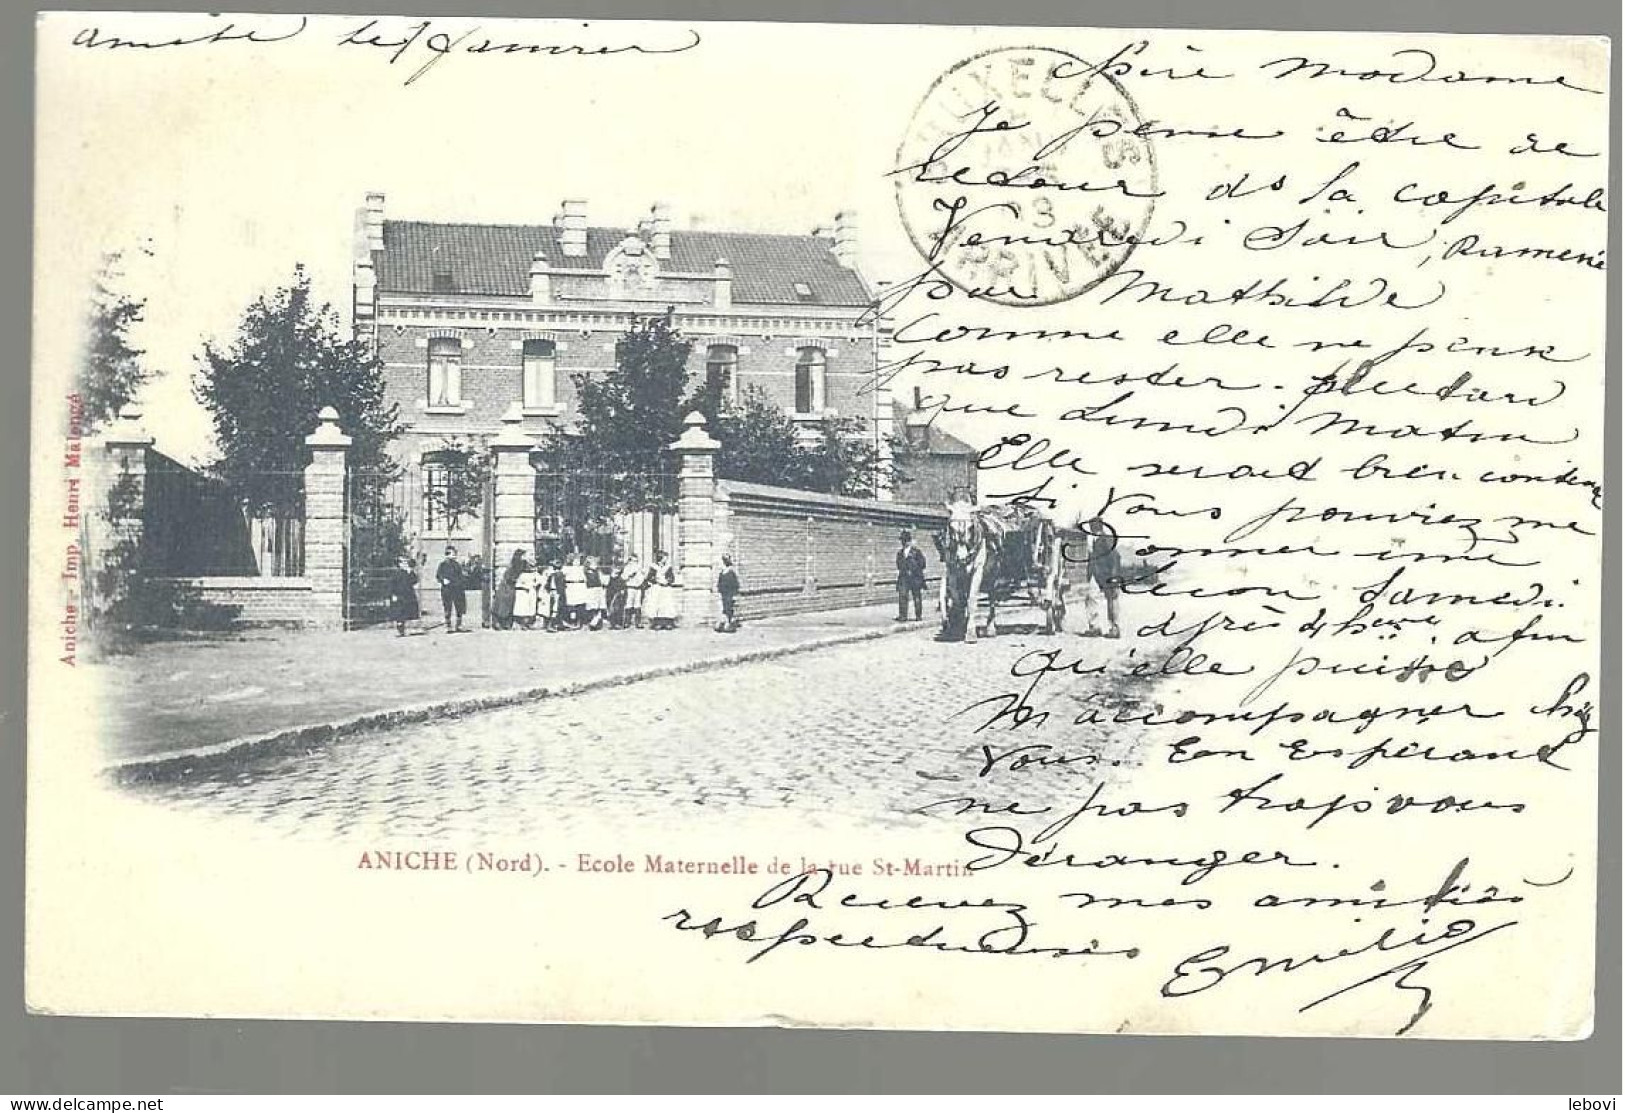 Aniche le 7 Janvier
BRUXELLES
JANV
03
ARRIVEE
Chère Madame
Je pense être de
retour ds la capitale
Vendredi Soir, Ramené
par Mathilde
Comme elle ne pense
pas rester. plus tard
que Lundi Matin
Elle serait bien contente
si Vous pouviez me
Donner une
Lecon Samedi.
après 4 heures. afin
qu'elle puisse
M'accompagner chez
Vous. En Espérant
ne pas trop vous
Déranger.
Recevez mes amitiés
respectueuses
Emilie
Aniche - Imp. Henri Malengé
ANICHE (Nord). - Ecole Maternelle de la rue St-Martin
delcampe.net
lebovi